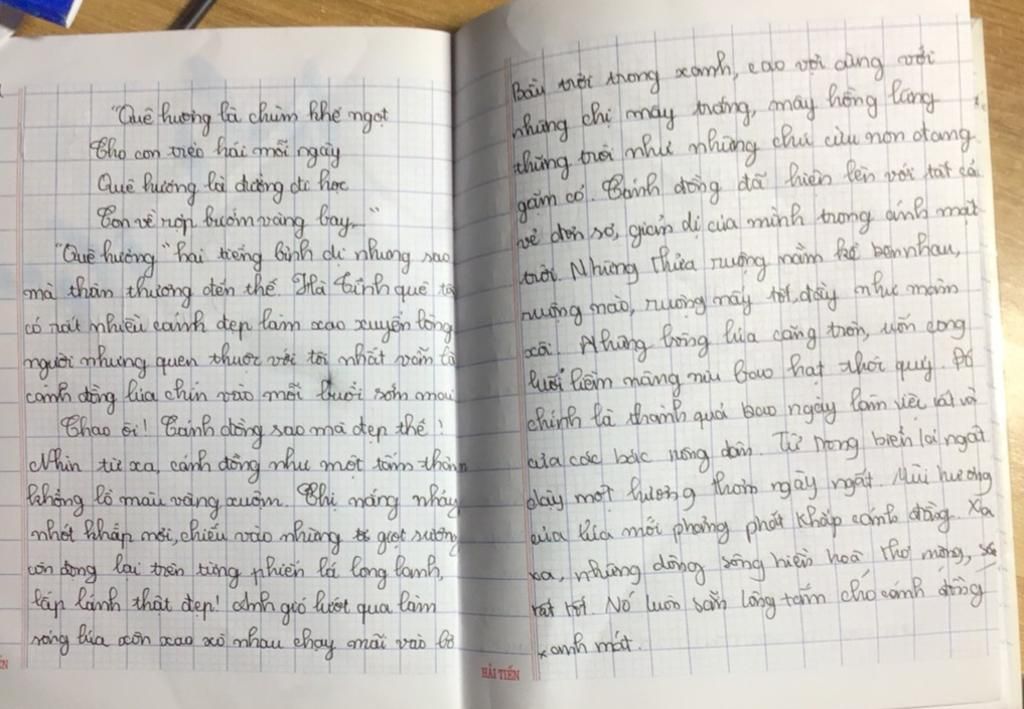 "Quê hương là chùm khế ngọt
Cho con trèo hái mỗi ngày
Quê hương là đường đi học
Con về rợp bướm vàng bay..."
"Quê hương" hai tiếng bình dị nhưng sao
mà thân thương đến thế. Hà Tĩnh quê tôi
có rất nhiều cảnh đẹp làm xao xuyến lòng
người nhưng quen thuộc với tôi nhất vẫn là
cánh đồng lúa chín vào mỗi buổi sớm mai
Chao ôi! Cánh đồng sao mà đẹp thế!
Nhìn từ xa, cánh đồng như một tấm thảm
khổng lồ màu vàng xuộm. Chị nắng nhảy
nhót khắp nơi, chiếu vào những giọt sương
còn đọng lại trên từng phiến lá long lanh,
lấp lánh thật đẹp! Anh gió lướt qua làm
sóng lúa xôn xao xô nhau chạy mãi vào bờ
HẢI TIẾN
Bầu trời trong xanh, cao vời cùng với
những chị mây trắng, mây hồng lang
thang trôi như những chú cừu non đang
gặm cỏ. Cánh đồng đã hiện lên với tất cả
vẻ đơn sơ, giản dị của mình trong ánh mặt
trời. Những thửa ruộng nằm kề bên nhau,
ruộng nào, ruộng nấy tốt, dày như mâm
xôi. Những bông lúa căng tròn, uốn cong
lưỡi liềm nặng nĩu bao hạt thóc quý. Đó
chính là thành quả bao ngày làm việc vất vả
của các bác nông dân. Từ trong biển lại ngất
dậy một hương thơm ngây ngất. Mùi hương
của lúa mới phảng phất khắp cánh đồng. Xa
xa, những dòng sông hiền hoà thơ mộng,
Nó luôn sẵn lòng tắm cho cánh đồng
xanh mát.